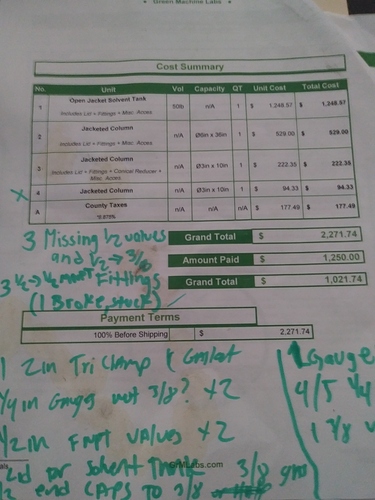 Green Machine Labs
Cost Summary
No. Unit Vol Capacity QT Unit Cost Total Cost
1 Open Jacket Solvent Tank 50lb n/A 1 $ 1,248.57 $ 1,248.57
Includes Lid + Fittings + Misc. Acces.
2 Jacketed Column n/A Ø6in x 36in 1 $ 529.00 $ 529.00
Includes Lid + Fittings + Misc. Acces.
3 Jacketed Column n/A Ø3in x 10in 1 $ 222.35 $ 222.35
Includes Lid + Fittings + Conical Reducer +
Misc. Acces.
X 4 Jacketed Column n/A Ø3in x 10in 1 $ 94.33 $ 94.33
A County Taxes n/A n/A n/A $ 177.49 $ 177.49
*9.875%
3 Missing 1/2 valves
and 1/2 → 3/8
Grand Total $ 2,271.74
Amount Paid $ 1,250.00
Grand Total $ 1,021.74
3 1/2 → 1/2 Fittings
(1 Broke, stuck)
Payment Terms
100% Before Shipping $ 2,271.74
1 2in Tri Clamp &
1/4 in Gauges not 3/8? x2
1/2 in FNPT valves x2
Lid for Solvent
2 end CAPS TO 3/8
3/8
1 Gauge
4/5 1/4
1 3/8 v
GMLabs.com